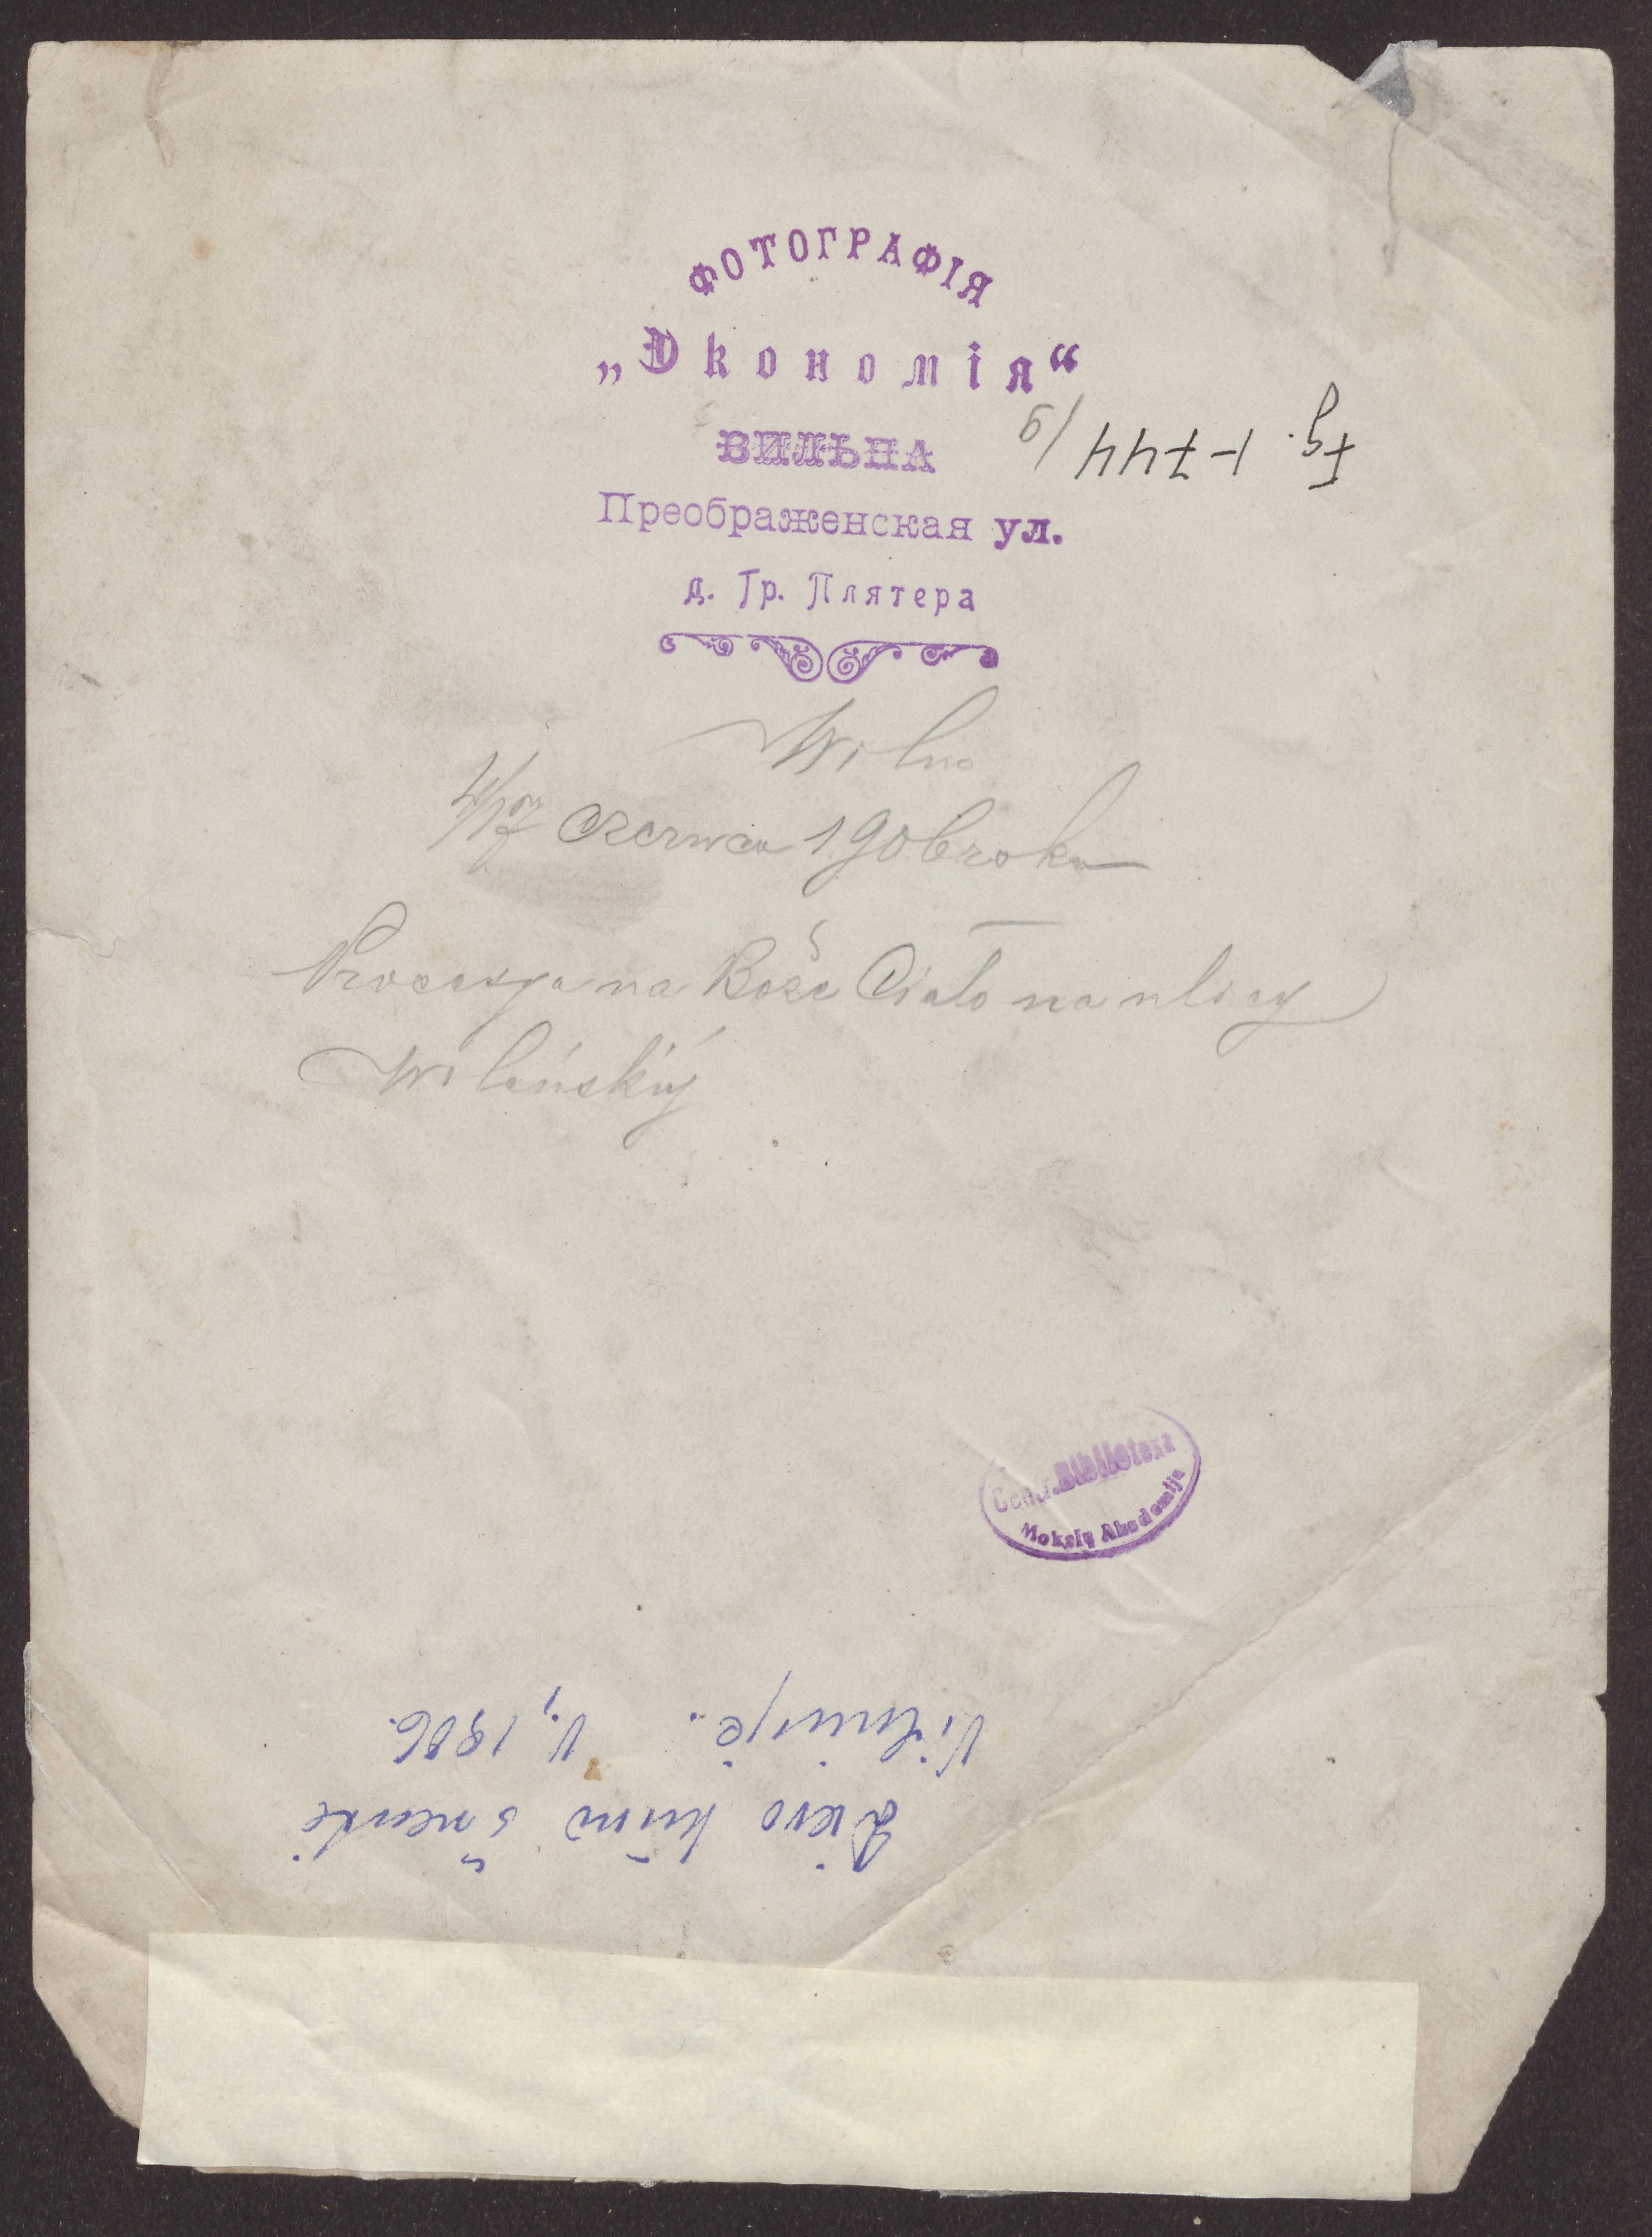 ФОТОГРАФІЯ
„Экономія“
ВИЛЬНА
Преображенская ул.
д. Гр. Плятера
Fg. 1-744/9
Wilno
4/17 Czerwca 1906 roku
Procesya na Boże Ciało na ulicy
Wileńskiéj
Centr. Biblioteka
Mokslų Akademija
Dievo kūno šventė
Vilniuje. V, 1906.